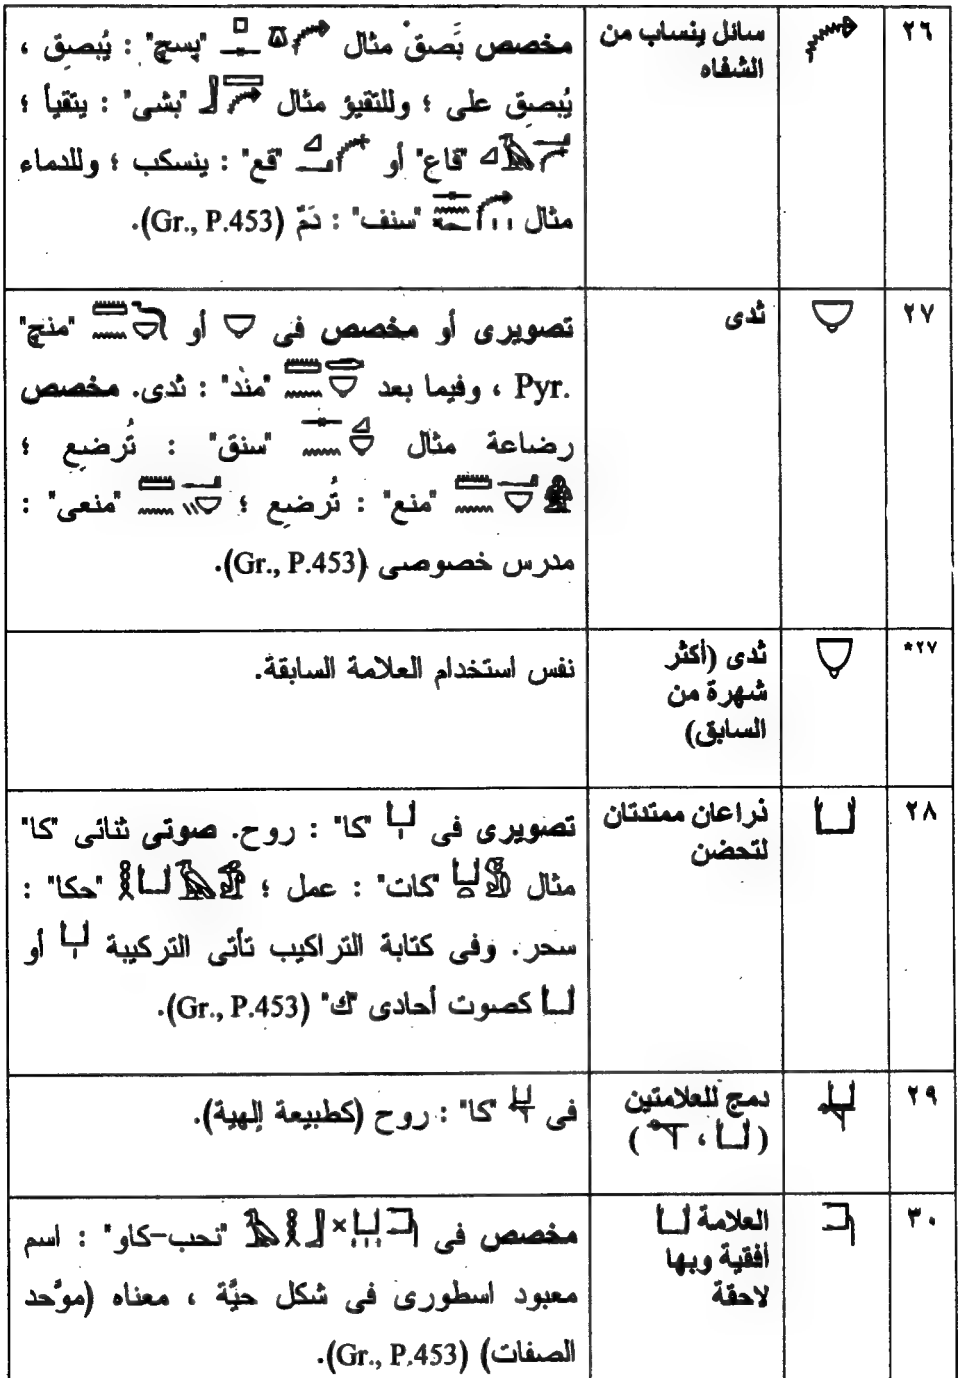 ٢٦ سائل ينساب من الشفاه
مخصص بَصقْ مثال "پسچ" : يُبصق ،
يُبصق على ؛ وللتقيؤ مثال "بشى" : يتقيأ ؛
"قاع" أو "قع" : ينسكب ؛ وللدماء
مثال "سنف" : دَمّ (Gr., P.453).
٢٧ ثدى
تصويرى أو مخصص فى أو "منچ"
Pyr. ، وفيما بعد "مند" : ثدى. مخصص
رضاعة مثال "سنق" : تُرضع ؛
"منع" : تُرضع ؛ "منعى" :
مدرس خصوصى (Gr., P.453).
٢٧* ثدى (أكثر
شهرة من
السابق)
نفس استخدام العلامة السابقة.
٢٨ ذراعان ممتدتان
لتحضن
تصويرى فى "كا" : روح. صوتى ثنائى "كا"
مثال "كات" : عمل ؛ "حكا" :
سحر. وفى كتابة التراكيب تأتى التركيبة أو
كصوت أحادى "ك" (Gr., P.453).
٢٩ دمج للعلامتين
( ، )
فى "كا" : روح (كطبيعة إلهية).
٣٠ العلامة
أفقية وبها
لاحقة
مخصص فى "نحب-كاو" : اسم
معبود اسطورى فى شكل حيَّة ، معناه (موَّحد
الصفات) (Gr., P.453).